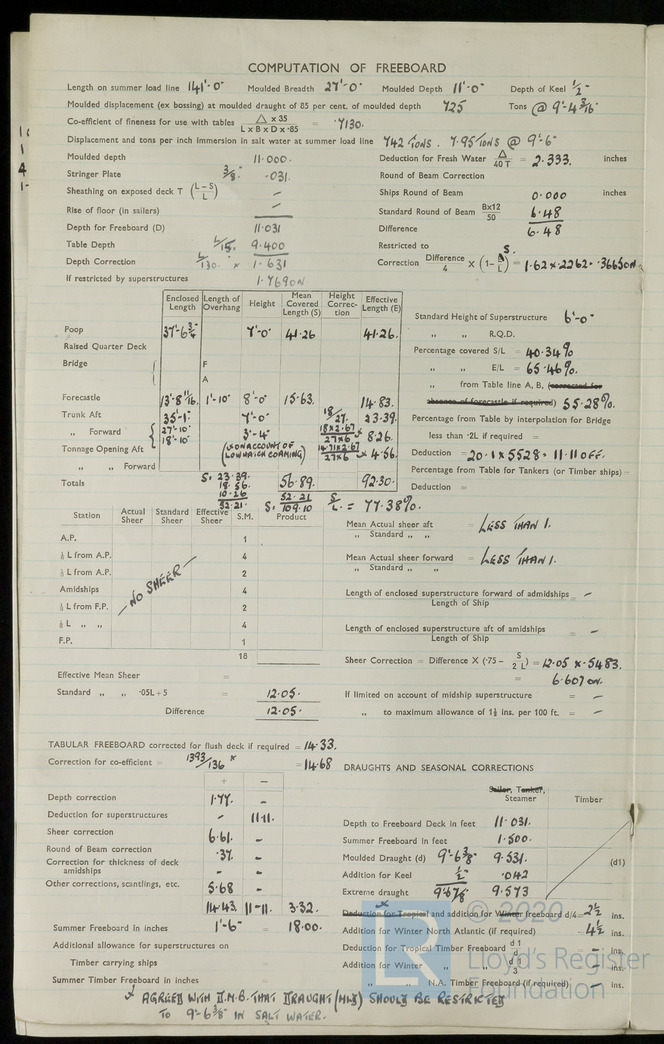 COMPUTATION OF FREEBOARD
Length on summer load line 141'-0" Moulded Breadth 27'-0" Moulded Depth 11'-0" Depth of Keel ½"
Moulded displacement (ex bossing) at moulded draught of 85 per cent. of moulded depth 725 Tons @ 9'-4 3/16"
Co-efficient of fineness for use with tables △ x 35 / L x B x D x ·85 = ·7130.
Displacement and tons per inch immersion in salt water at summer load line 742 TONS. 7.95 TONS @ 9'-6"
Moulded depth 11.000.
Stringer Plate 3/8" .031.
Sheathing on exposed deck T (L–S / L) –
Rise of floor (in sailers) –
Depth for Freeboard (D) 11.031
Table Depth L/15. 9.400
Depth Correction L/130. x 1.631
If restricted by superstructures 1.769 ON
Deduction for Fresh Water △ / 40 T = 2.333. inches
Round of Beam Correction
Ships Round of Beam 0.000 inches
Standard Round of Beam Bx12 / 50 6.48
Difference 6.48
Restricted to
Correction Difference / 4 X (1- S / L) = 1.62 x .2262 = .3665 ON
Enclosed Length Length of Overhang Height Mean Covered Length (S) Height Correc-tion Effective Length (E)
Poop 37'-6¾" 7'-0" 41.26 41.26.
Raised Quarter Deck
Bridge F
A
Forecastle 13'-8 11/16. 1'-10" 8'-0" 15.63. 14.83.
Trunk Aft 35'-1" 7'-0" 18/27. 23.39.
" Forward 27'-10" 18'-10" 3'-4" 18 x 2.67 / 27 x 6 x 8.26
Tonnage Opening Aft (x ON ACCOUNT OF LOW HATCH COAMING) 27 x 6 x 4.56
" " Forward
Totals S. 23.39. 18.56. 10.26 52.21. 56.89. 52.21 S. 109.10 92.30.
S/L = 77.38%.
Standard Height of Superstructure 6'-0"
" " R.Q.D.
Percentage covered S/L = 40.34%
" " E/L = 65.46%.
" from Table line A, B, (corrected for absence of forecastle if required) 55.28%.
Percentage from Table by interpolation for Bridge
less than ·2L if required =
Deduction = 20.1 x 5528 = 11.11 OFF.
Percentage from Table for Tankers (or Timber ships) =
Deduction =
Station Actual Sheer Standard Sheer Effective Sheer S.M. Product
A.P. 1
⅙ L from A.P. 4
⅓ L from A.P. 2
Amidships 4
⅓ L from F.P. 2
⅙ L " " 4
F.P. 1
18
– NO SHEER –
Mean Actual sheer aft / " Standard " " = LESS THAN 1.
Mean Actual sheer forward / " Standard " " = LESS THAN 1.
Length of enclosed superstructure forward of admidships / Length of Ship = –
Length of enclosed superstructure aft of amidships / Length of Ship = –
Effective Mean Sheer =
Standard " " ·05L+5 = 12.05.
Difference 12.05.
Sheer Correction = Difference X (·75 – S / 2 L) = 12.05 x .5483.
= 6.607 ON.
If limited on account of midship superstructure = –
" to maximum allowance of 1½ ins. per 100 ft. = –
TABULAR FREEBOARD corrected for flush deck if required = 14.33.
Correction for co-efficient = 1393/136 x = 14.68
+ –
Depth correction 1.77. –
Deduction for superstructures – 11.11.
Sheer correction 6.61. –
Round of Beam correction .37. –
Correction for thickness of deck amidships – –
Other corrections, scantlings, etc. 5.68 –
14.43. 11-11. 3.32.
Summer Freeboard in inches 1'-6" = 18.00.
Additional allowance for superstructures on
Timber carrying ships =
Summer Timber Freeboard in inches =
DRAUGHTS AND SEASONAL CORRECTIONS
Sailer, Tanker, Steamer Timber
Depth to Freeboard Deck in feet 11.031.
Summer Freeboard in feet 1.500.
Moulded Draught (d) 9'-6⅜" 9.531. (d1)
Addition for Keel ½" .042
Extreme draught 9'-6⅞" 9.573
x
Deduction for Tropical and addition for Winter freeboard d/4 = 2½ ins.
Addition for Winter North Atlantic (if required) 4½ ins.
Deduction for Tropical Timber Freeboard d 1 / 4 – ins.
Addition for Winter " " d 1 / 3 – ins.
" N.A. Timber Freeboard (if required) – ins.
x AGREED WITH D.M.B. THAT DRAUGHT (MLD) SHOULD BE RESTRICTED
TO 9'-6⅜" IN SALT WATER.
© 2020
Lloyd's Register
Foundation